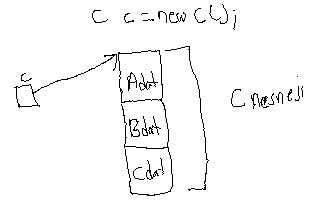 C c = new C();
c
Adat
Bdat
Cdat
C nesnesi